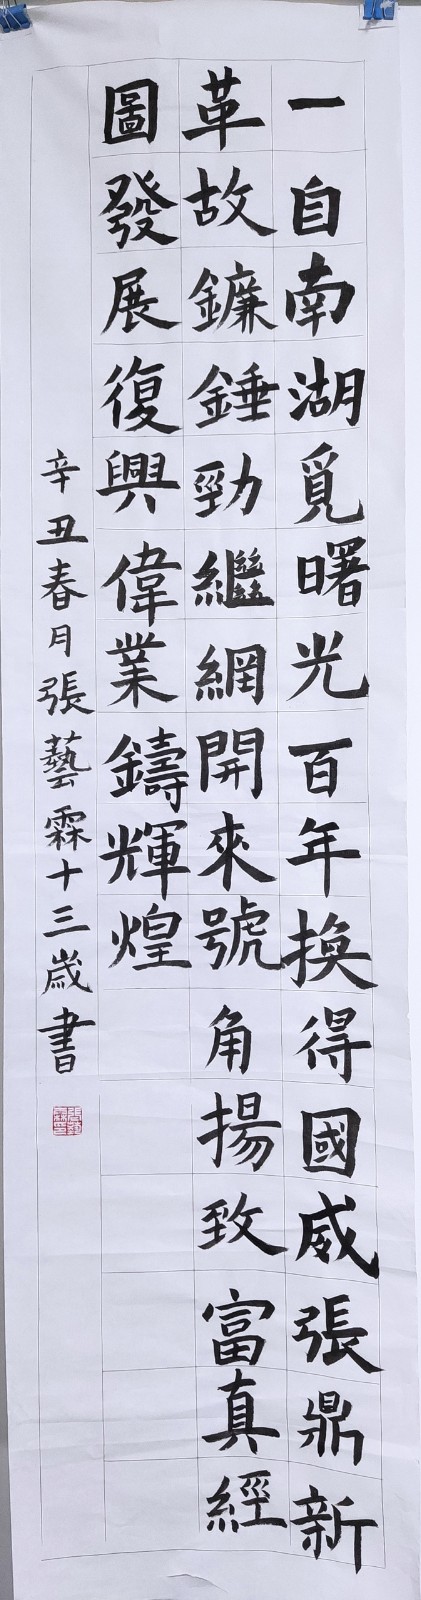 一自南湖覓曙光百年換得國威張鼎新
革故鐮錘勁繼網開來號角揚致富真經
圖發展復興偉業鑄輝煌
辛丑春月張藝霖十三歲書